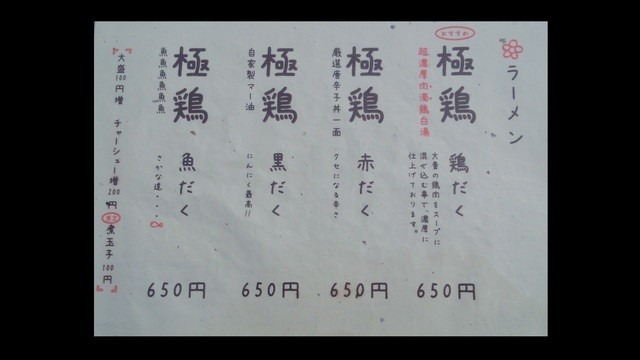 ラーメン
おすすめ
極鶏
超濃厚肉濁鶏白湯
鶏だく
大量の鶏肉をスープに
混ぜ込む事で、濃厚に
仕上げております。
650円
極鶏
厳選唐辛子丼一面
赤だく
クセになる辛さ
650円
極鶏
自家製マー油
黒だく
にんにく最高!!
650円
極鶏
魚魚魚魚魚魚
魚だく
さかな達・・・
650円
大盛100円増 チャーシュー増200円
煮玉子100円